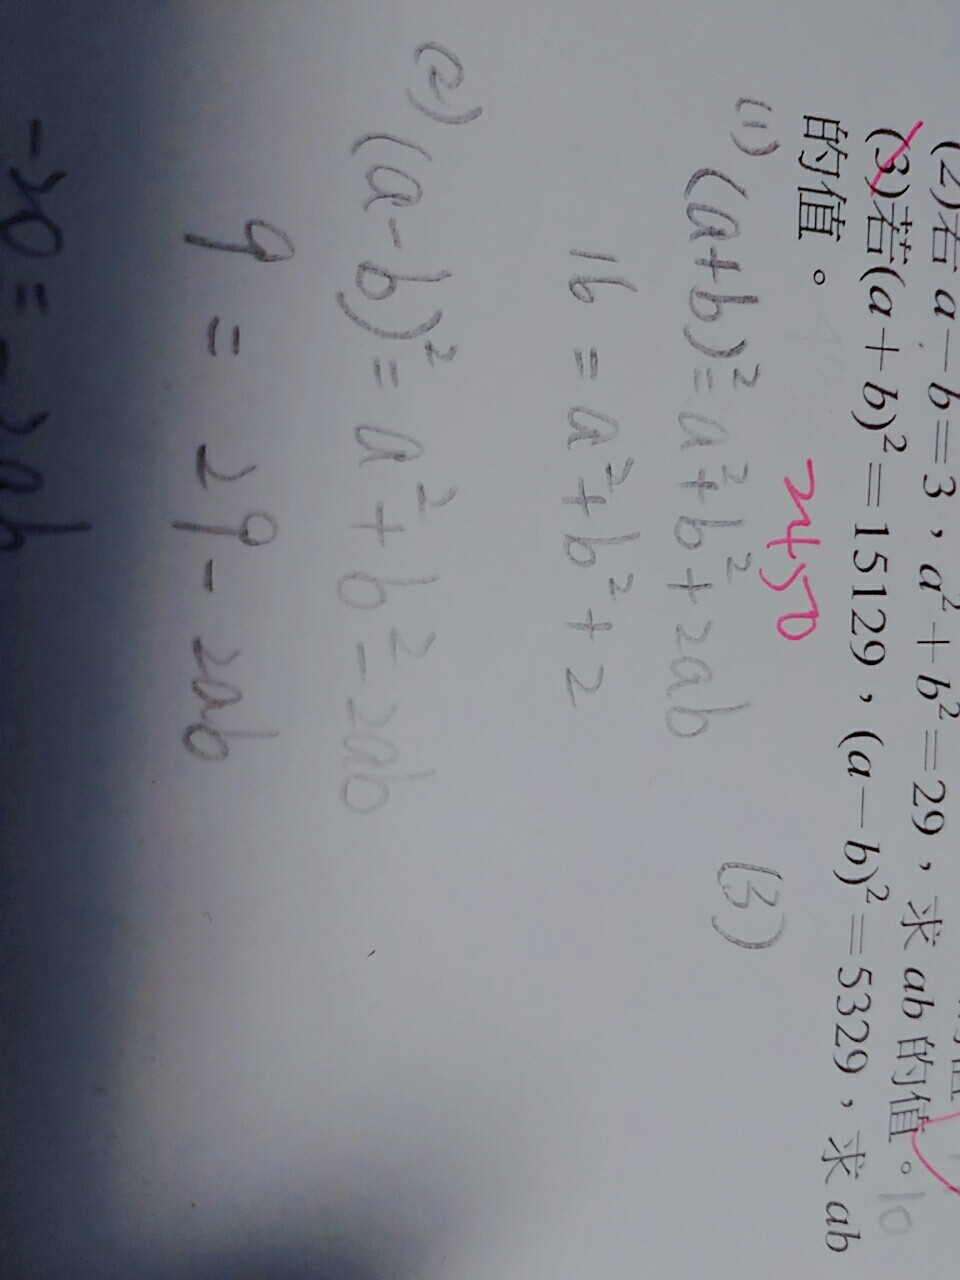 (2)若a－b＝3，a²＋b²＝29，求ab的值。10
(3)若(a＋b)²＝15129，(a－b)²＝5329，求ab
的值。
2450
(1) (a+b)²=a²+b²+2ab
16=a²+b²+2
(2) (a-b)²=a²+b²-2ab
9=29-2ab
-20=-2ab
(3)